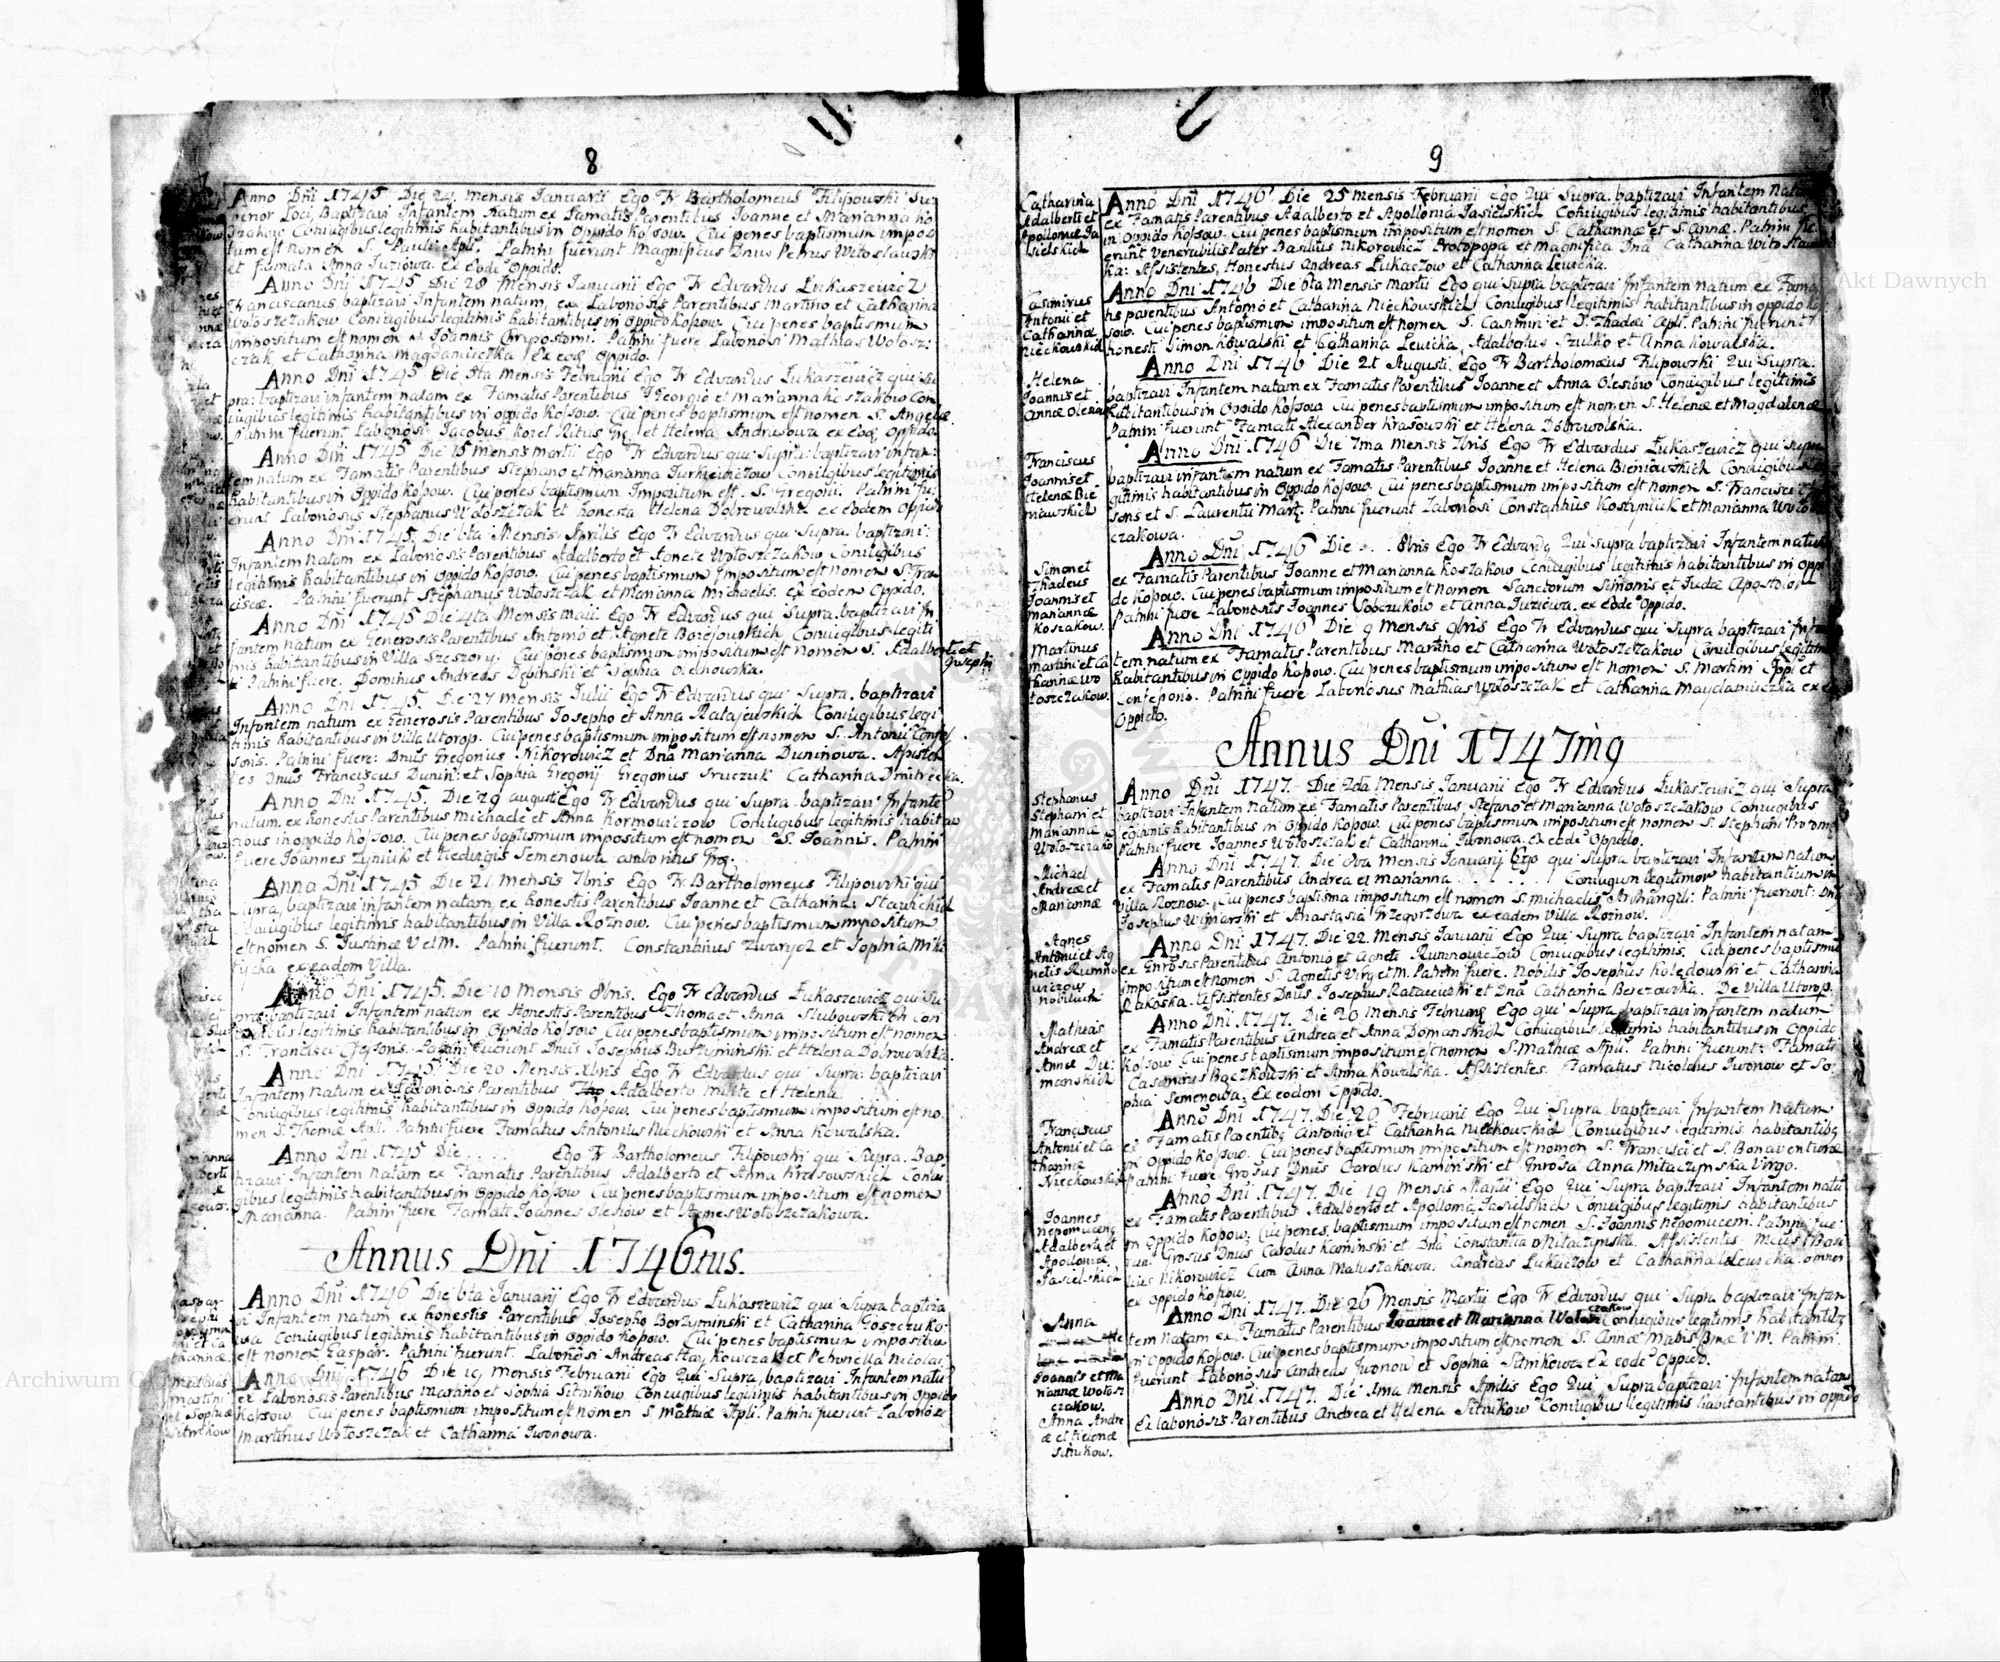 8
Anno Dni 1745 Die 24 mensis Ianuarii Ego Fr Bartholomeus Filipowski Su-
perior Loci, Baptizavi Infantem Natum ex Famatis Parentibus Ioanne et Marianna Ko
szakow Coniugibus legitimis habitantibus in Oppido Kossow. Cui penes baptismum impos
tum est nomen S. Pauli Apli. Patrini fuerunt Magnificus Dnus Petrus Witoslawski
et famata Anna Iuziowa. Ex eode Oppido.
Anno Dni 1745 Die 28 Mensis Ianuarii Ego Fr Edvardus Łukaszewicz
Franciscanus baptizavi Infantem natum, ex Laboriosis Parentibus Martino et Catharina
Wołoszczakow Coniugibus legitimis habitantibus in Oppido Kossow. Cui penes baptismum
impositum est nomen S. Ioannis Chrysostomi. Patrini fuere Laboriosi Mathias Wołosz:
czak et Catharina magdaniuczka Ex eoq Oppido.
Anno Dni 1745 Die 9ta Mensis Februarii Ego Fr Edvardus Łukaszewicz qui Su
pra: baptizavi infantem natam ex Famatis Parentibus Georgio et Marianna Koszakow Con
iugibus legitimis habitantibus in oppido Kossow. Cui penes baptismum est nomen S. Angelæ
Patrini fuerunt Laboriosi Jacobus Kozel Ritus Grq et Helena Andrusowa ex eoq Oppido.
Anno Dni 1745 Die 15 mensis Martii Ego Fr Edvardus qui Supra: baptizavi infan:
tem natum ex Famatis Parentibus Stephano et Marianna Iurkiewiczow Coniugibus legitimis
habitantibus in Oppido Kossow. Cui penes baptismum Impositum est. S. Gregorii. Patrini fu:
erunt Laboriosus Stephanus Wołoszczak et honesta Helena Dobrowolska ex eodem Oppido
Anno Dni 1745. Die 6ta Mensis Aprilis Ego Fr Edvardus qui Supra. baptizavi:
Infantem Natam ex Laboriosis Parentibus Adalberto et Agnete Wołoszczakow Coniugibus
legitimis habitantibus in Oppido Kossow. Cui penes baptismum Impositum est nomen S. Fran
ciscæ. Patrini fuerunt Stephanus Wołoszczak et Marianna Michaelis. ex eodem Oppido.
Anno Dni 1745 Die 4ta Mensis Maii. Ego Fr Edvardus qui Supra baptizavi In
fantem natum ex Generosis Parentibus Antonio et Agnete Coniugibus legiti
mis habitantibus in Villa Szeszory: Cui penes baptismum impositum est nomen S. Adalberti et
Iosephi
Patrini fuere. Dominus Andreas Dębinski et Sophia Olchowska.
Anno Dni 1745. Die 27 mensis Iulii Ego Fr Edvardus qui Supra. baptizavi
Infantem natum ex Generosis Parentibus Iosepho et Anna Ratajewskich Coniugibus legi
timis habitantibus in Villa Utorop. Cui penes baptismum impositum est nomen S. Antonii Confes
soris. Patrini fuere: Dnus Gregorius Nikorowicz et Dna Marianna Duninowa. Assisten
tes Dnus Franciscus Dunin: et Sophia Gregorij Gregorius Iruczuk Catharina Dmitrecka.
Anno Dni 1745. Die 29 august Ego Fr Edvardus qui Supra baptizavi Infante
natum, ex honestis Parentibus Michaele et Anna Kormowiczow Coniugibus legitimis habitan
tibus in oppido Kossow. Cui penes baptismum impositum est nomen S. Ioannis. Patrini
fuere Ioannes Zyniuk et Hedvigis Semenowa amborum ritus Grq.
Anno Dni 1745 Die 21 Mensis 7bris Ego Fr Bartholomeus Filipowski qui
Supra, baptizavi infantem natam, ex honestis Parentibus Ioanne et Catharina Stawickich
Coniugibus legitimis habitantibus in Villa Rożnow. Cui penes baptismum impositum
est nomen S. Iustinæ V et M. Patrini fuerunt. Constantinus Zwarycz et Sophia Miki
tycka ex eadem Villa.
Anno Dni 1745. Die 10 Mensis 8bris. Ego Fr Edvardus Łukaszewicz qui Su
pra: baptizavi Infantem natum ex Honestis Parentibus Thoma et Anna Slubowskich Con
iugibus legitimis habitantibus in Oppido Kossow Cui penes baptismum impositum est nomen
S. Francisci Cfessoris. Patrini fuerunt Dnus Iosephus Burzyminski et Helena Dobrowolska.
Anno Dni 1745. Die 20 Mensis Xbris Ego Fr Edvardus qui Supra: baptizavi
Infantem natum ex Laboriosis Parentibus Adalberto milite et Helena
Coniugibus legitimis habitantibus in Oppido Kossow. Cui penes baptismum impositum est no.
men S. Thomæ Apli. Patrini fuere Famatus Antonius Niechowski et Anna Kowalska.
Anno Dni 1745 Die . . . . Ego Fr Bartholomeus Filipowski qui Supra. Bap
tizavi Infantem natam ex Famatis Parentibus Adalberto et Anna Krasowskich Coniu
gibus legitimis habitantibus in Oppido Kossow Cui penes baptismum impositum est nomen
Marianna. Patrini fuere Famati Ioannes Olesiow et Agnes Wołoszczakowa.
Annus Dni 1746tus.
Anno Dni 1746 Die 6ta Ianuarij Ego Fr Edvardus Łukaszewicz qui Supra baptiza
vi Infantem natum ex honestis Parentibus Iosepho Borzyminski et Catharina Goszczuko
wa Coniugibus legitimis habitantibus in Oppido Kossow. Cui penes baptismum impositum
est nomen Gaspar. Patrini fuerunt. Laboriosi Andreas Haykowczak et Petronella Nicolai
Anno Dni 1746 Die 19 Mensis Februarii Ego Qui Supra, baptizavi Infantem natu
ex Laboriosis Parentibus Martino et Sophia Sitnikow. Coniugibus legitimis habitantibus in Oppido
Kossow. Cui penes baptismum impositum est nomen S. Mathiæ Apli. Patrini fuerunt Laboriosi
Martinus Wołoszczak et Catharina Iwonowa.
9
Catharina
Adalberti et
Apolloniæ Ja
sielskich
Anno Dni 1746 Die 25 mensis Februarii Ego Qui Supra. baptizavi Infantem Natam
ex Famatis Parentibus Adalberto et Apollonia Jasielskich Coniugibus legitimis habitantibus
in Oppido Kossow. Cui penes baptismum impositum est nomen S. Catharinæ et S. Annæ. Patrini fu
erunt Venerabilis Pater Basilius Nikorowicz Protopopa et Magnifica Dna Catharina Witoslaws
ka: Assistentes, Honestus Andreas Łukaczow et Catharina Lewicka.
Casimirus
Antonii et
Catharinæ
Niechowskich
Anno Dni 1746 Die 6ta Mensis Martii Ego qui Supra baptizavi Infantem natum ex Fama
tis parentibus Antonio et Catharina Niechowskich Coniugibus legitimis habitantibus in oppido Ko
sow. Cui penes baptismum impositum est nomen S. Casimiri et S. Thadæi Apli. Patrini fuerunt
honesti Simon Kowalski et Catharina Lewicka, Adalbertus Szulko et Anna Kowalska.
Helena
Joannis et
Annæ Olesiow
Anno Dni 1746 Die 21 Augusti, Ego Fr Bartholomæus Filipowski Qui Supra.
baptizavi Infantem natam ex Famatis Parentibus Ioanne et Anna Olesiow Coniugibus legitimis
habitantibus in Oppido Kossow Cui penes baptismum impositum est nomen S. Helenæ et Magdalenæ
Patrini fuerunt Famati Alexander Krasowski et Helena Dobrowolska.
Franciscus
Joannis et
Helenæ Bie
niawskich
Anno Dni 1746 Die 7ma Mensis 7bris Ego Fr Edvardus Łukaszewicz qui supra
baptizavi infantem natum ex Famatis Parentibus Ioanne et Helena Bieniowskich Coniugibus le
gitimis habitantibus in Oppido Kossow. Cui penes baptismum impositum est nomen S. Francisci Cfes
soris et S. Laurentii Martq Patrini fuerunt Laboriosi Constantius Kostyniuk et Marianna Wołosz
czakowa.
Simon et
Thadeus
Joannis et
Mariannæ
Koszakow.
Anno Dni 1746 Die . . . 8bris Ego Fr Edvardq Qui supra baptizavi Infantem natum
ex Famatis Parentibus Ioanne et Marianna Koszakow Coniugibus legitimis habitantibus in Oppi
do Kossow. Cui penes baptismum impositum est nomen Sanctorum Simonis et Iudæ Apostolor
Patrini fuere Laboriosis Joannes Sobczukow et Anna Iuziowa. ex eode Oppido.
Martinus
Martini et Ca
tharinæ Wo
łoszczakow.
Anno Dni 1746 Die 9 Mensis 9bris Ego Fr Edvardus qui Supra baptizavi Infan
tem natum ex Famatis Parentibus Martino et Catharina Wołoszczakow Coniugibus legitim
habitantibus in Oppido Kossow. Cui penes baptismum impositum est nomen S. Martini Eppi et
Confessoris. Patrini fuere Laboriosus Mathias Wołoszczak et Catharina Maydaniuczka ex eo
Oppido.
Annus Dni 1747mq
Stephanus
Stephani et
Mariannæ
Wołoszczako
Anno Dni 1747. Die 2da Mensis Ianuarii Ego Fr Edvardus Łukaszewicz qui Supra
baptizavi Infantem Natum ex Famatis Parentibus Stefano et Marianna Wołoszczakow Coniugibus
legitimis habitantibus in Oppido Kossow. Cui penes baptismum impositum est nomen S. Stephani Protom
Patrini fuere Joannes Wołoszczak et Catharina Iwonowa. Ex eode Oppido.
Michael
Andreæ et
Mariannæ
Anno Dni 1747. Die 8va Mensis Ianuarij Ego qui Supra baptizavi Infantem natum
ex Famatis Parentibus Andrea et Marianna . . . . . Coniugum legitimor habitantium in
Villa Rożnow. Cui penes baptisma impositum est nomen S. Michaelis Archangeli: Patrini fuerunt: Dnq
Iosephus Winiarski et Anastasia Grzegorzowa ex eadem Villa Rożnow.
Agnes
Antonii et Ag
netis Rumno
wiczow
nobilium
Anno Dni 1747. Die 22. Mensis Ianuarii Ego Qui Supra baptizavi Infantem natam
ex Gnrosis Parentibus Antonio et Agneti Rumnowiczow Coniugibus legitimis. Cui penes baptismu
impositum est nomen S. Agnetis Virg et M. Patrini fuere. Nobilis Iosephus Kolędowski et Catharina
Rakoska. Assistentes Dnus Josephus Rataiewski et Dna Catharina Berezowska. De Villa Utorop.
Mathias
Andreæ et
Annæ Do:
manskich
Anno Dni 1747. Die 26 Mensis Februarij Ego qui Supra baptizavi infantem natum
ex Famatis Parentibus Andrea et Anna Domanskich Coniugibus legitimis habitantibus in Oppido
Kossow Cui penes baptismum impositum est nomen S. Mathiæ Apli. Patrini fuerunt: Famati
Casimirus Bączkowski et Anna Kowalska. Assistentes. Famatus Nicolaus Iwonow et So:
phia Semenowa; Ex eodem Oppido.
Franciscus
Antonii et Ca
tharinæ
Niechowskich
Anno Dni 1747. Die 26 Februarii Ego Qui Supra. baptizavi Infantem Natum
ex Famatis Parentibq Antonio et Catharina Niechowskich Coniugibus legitimis habitantibq
in Oppido Kossow. Cui penes baptismum impositum est nomen S. Francisci et S. Bonaventuræ
Patrini fuere Grosus Dnus Carolus Kaminski et Gnrosa Anna Mitaczynska Virgo.
Joannes
nepomuceng
Adalberti et
Apolloniæ
Jasielskich
Anno Dni 1747. Die 19 Mensis Martii Ego Qui Supra baptizavi Infantem natu
ex Famatis Parentibus Adalberto et Apollonia Jasielskich Coniugibus legitimis habitantibus
in Oppido Kossow; Cui penes baptismum impositum est nomen S. Ioannis nepomuceni. Patrini fue:
runt Grosus Dnus Carolus Kaminski et Dna Constantia Mitaczynska. Assistentes Basi
lius Nikorowicz Cum Anna Matuszakowa; Andreas Łukaczow et Catharina Lewicka: omnes
ex Oppido Kossow.
Anna
Joannis et Ma
riannæ Wołosz
czakow.
Anno Dni 1747. Die 26 Mensis Martii Ego Fr Edvardus qui Supra baptizavi Infan
tem Natam ex Famatis Parentibus Ioanne et Marianna Wołosz czakow Coniugibus legitimis habitantibq
in Oppido Kossow. Cui penes baptismum impositum est nomen S. Annæ Matris Bmæ V M. Patrini
Fuerunt Laboriosus Andreas Iwonow et Sophia Sitnikowa Ex eode Oppido.
Anna Andre
æ et Helenæ
Sitnikow.
Anno Dni 1747. Die 1ma Mensis Aprilis Ego Qui Supra baptizavi Infantem natam
Ex laboriosis Parentibus Andrea et Helena Sitnikow Coniugibus legitimis habitantibus in Oppido
Archiwum Główne Akt Dawnych